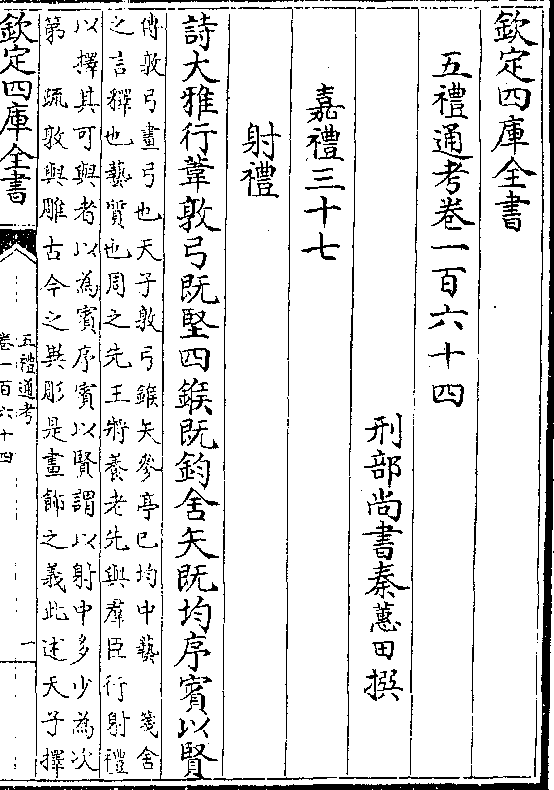 欽定四庫全書
五禮通考卷一百六十四
刑部尚書秦蕙田撰
嘉禮三十七
射禮
詩大雅行葦敦弓既堅四鍭既鈞舍矢既均序賓以賢
傳敦弓畫弓也天子敦弓鍭矢參亭已均中藝　箋舍
之言釋也藝質也周之先王將養老先與羣臣行射禮
以擇其可與者以為賓序賓以賢謂以射中多少為次
第　疏敦與雕古今之異彫是畫飾之義此述天子擇
欽定四庫全書
五禮通考
卷一百六十四
一